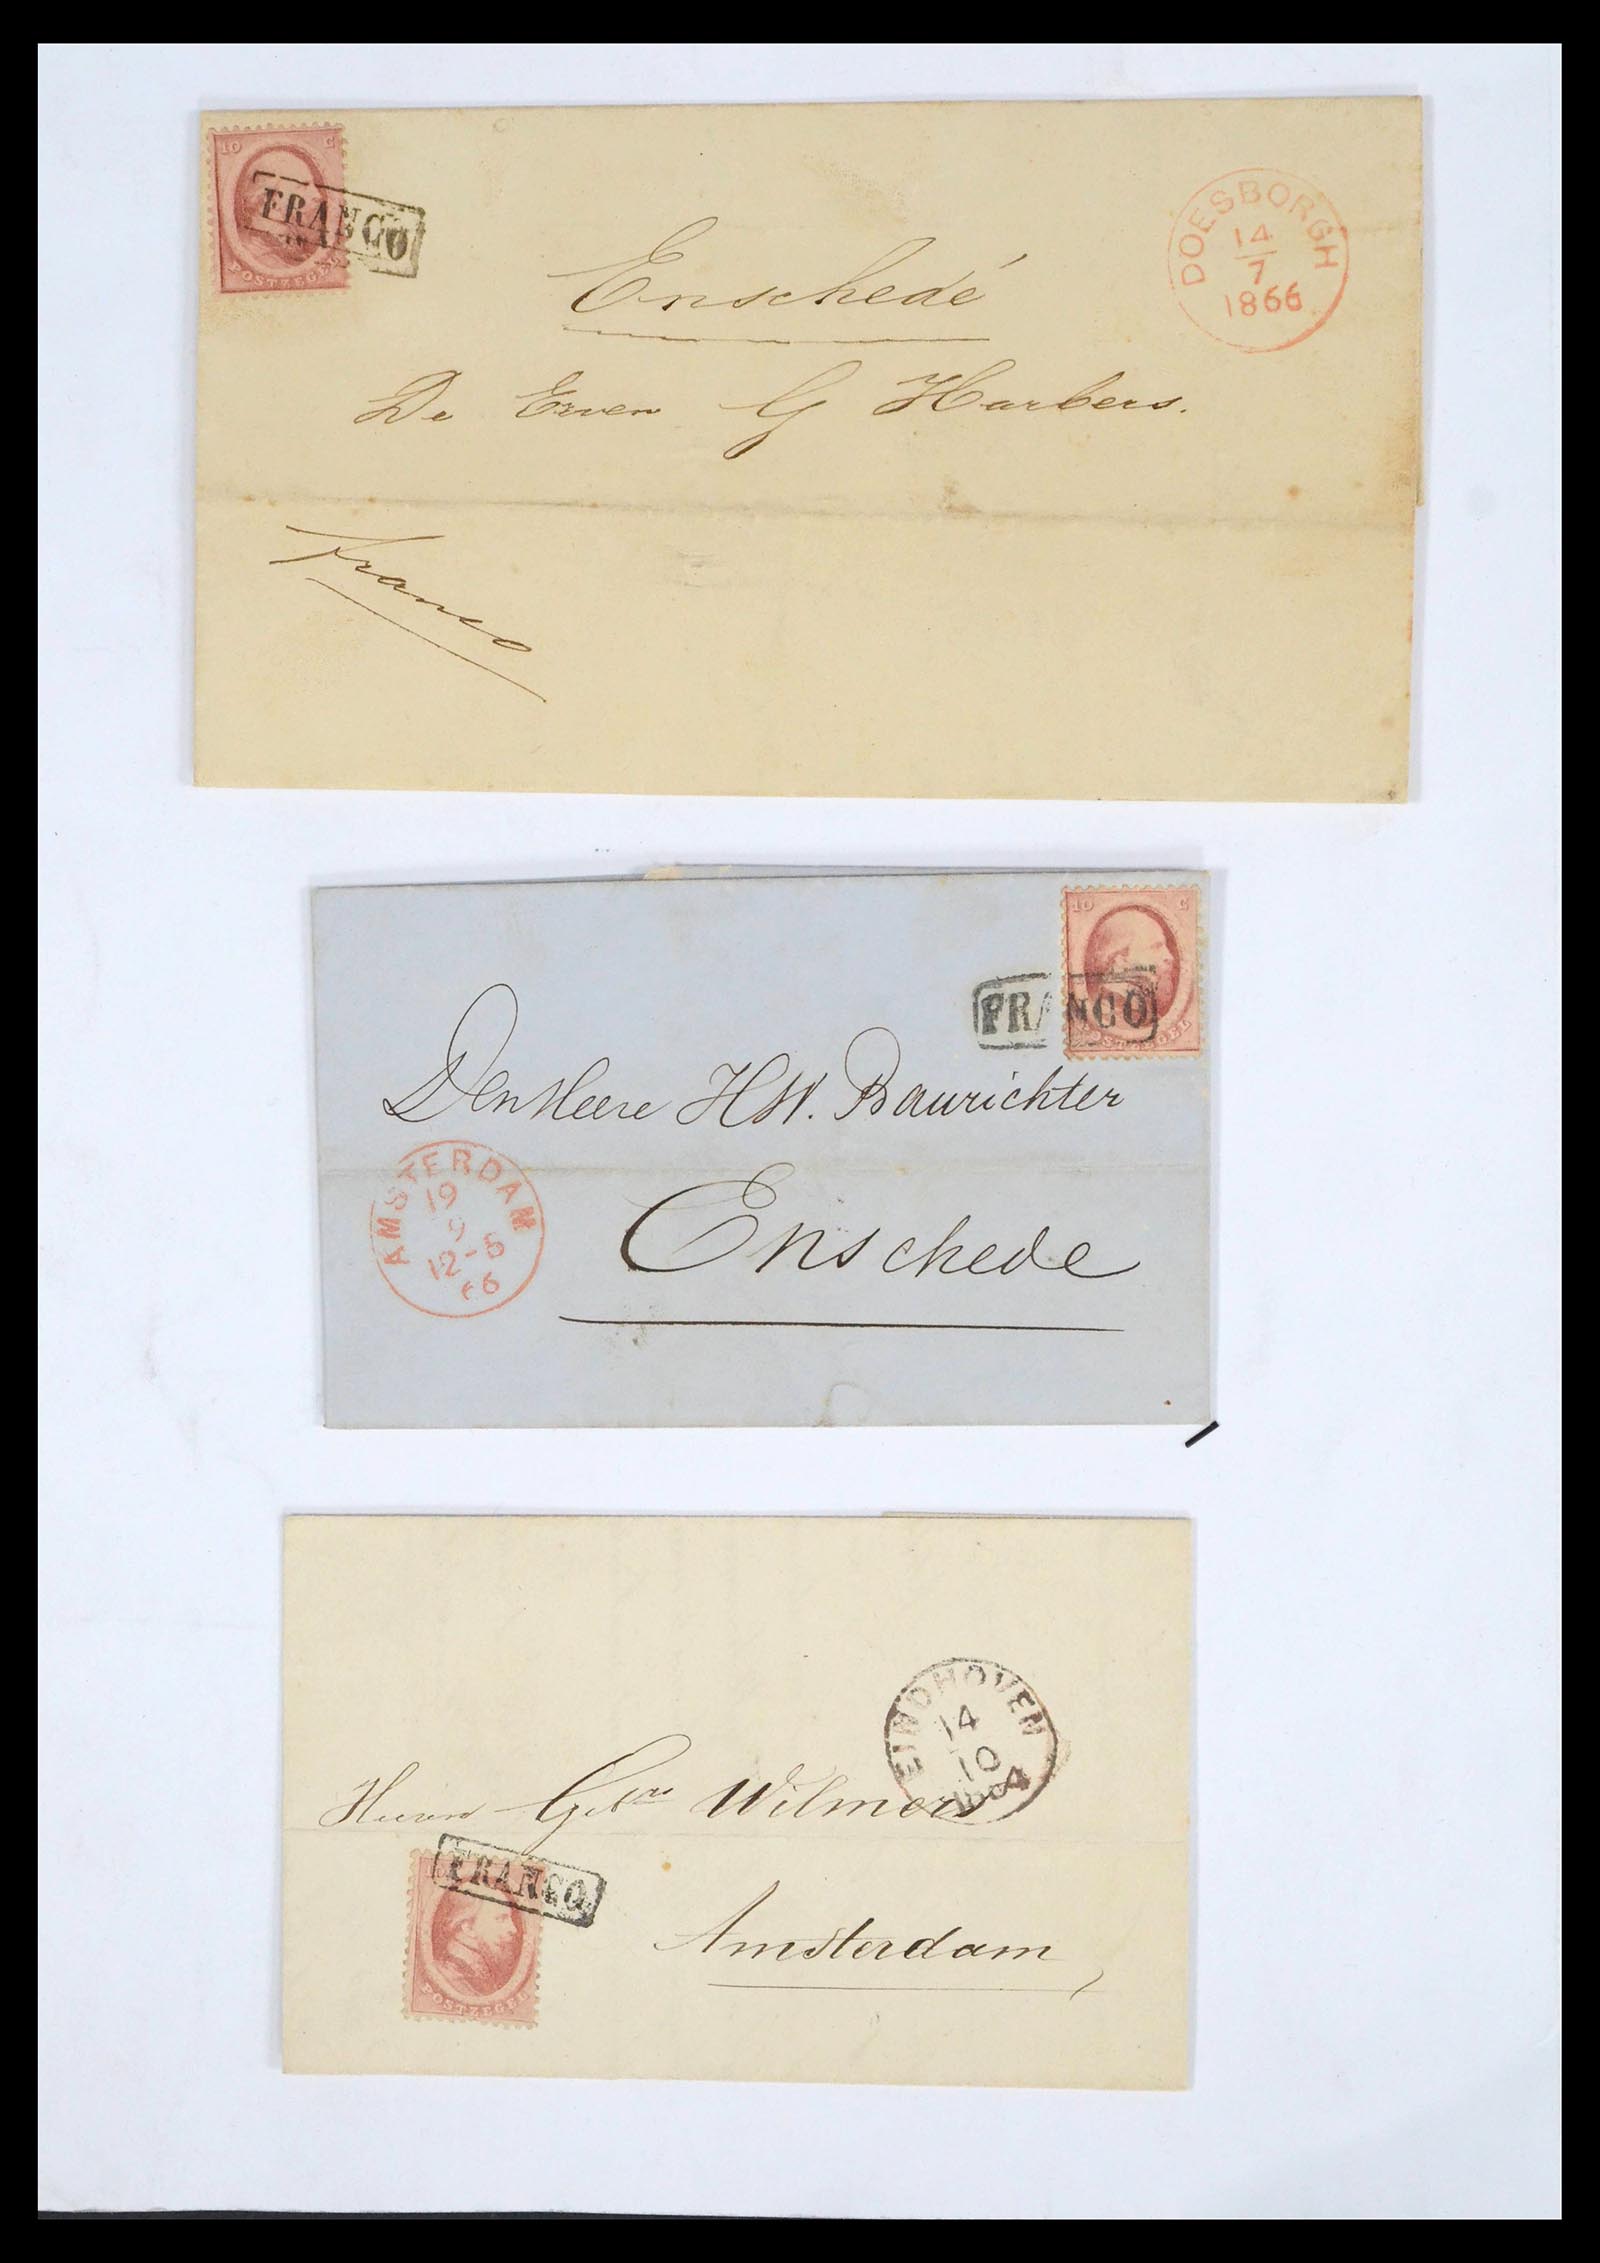 10 C
FRANCO
POSTZEGEL
DOESBORGH
14
7
1866
Enschedé
De Erven G Harbers.
Franco
10 C
FRANCO
POSTZEGEL
Den Heere HW. Baurichter
AMSTERDAM
19
9
12-5
66
Enschede
EINDHOVEN
14
10
1864
Heeren Gebrs Wilmers
FRANCO
POSTZEGEL
Amsterdam